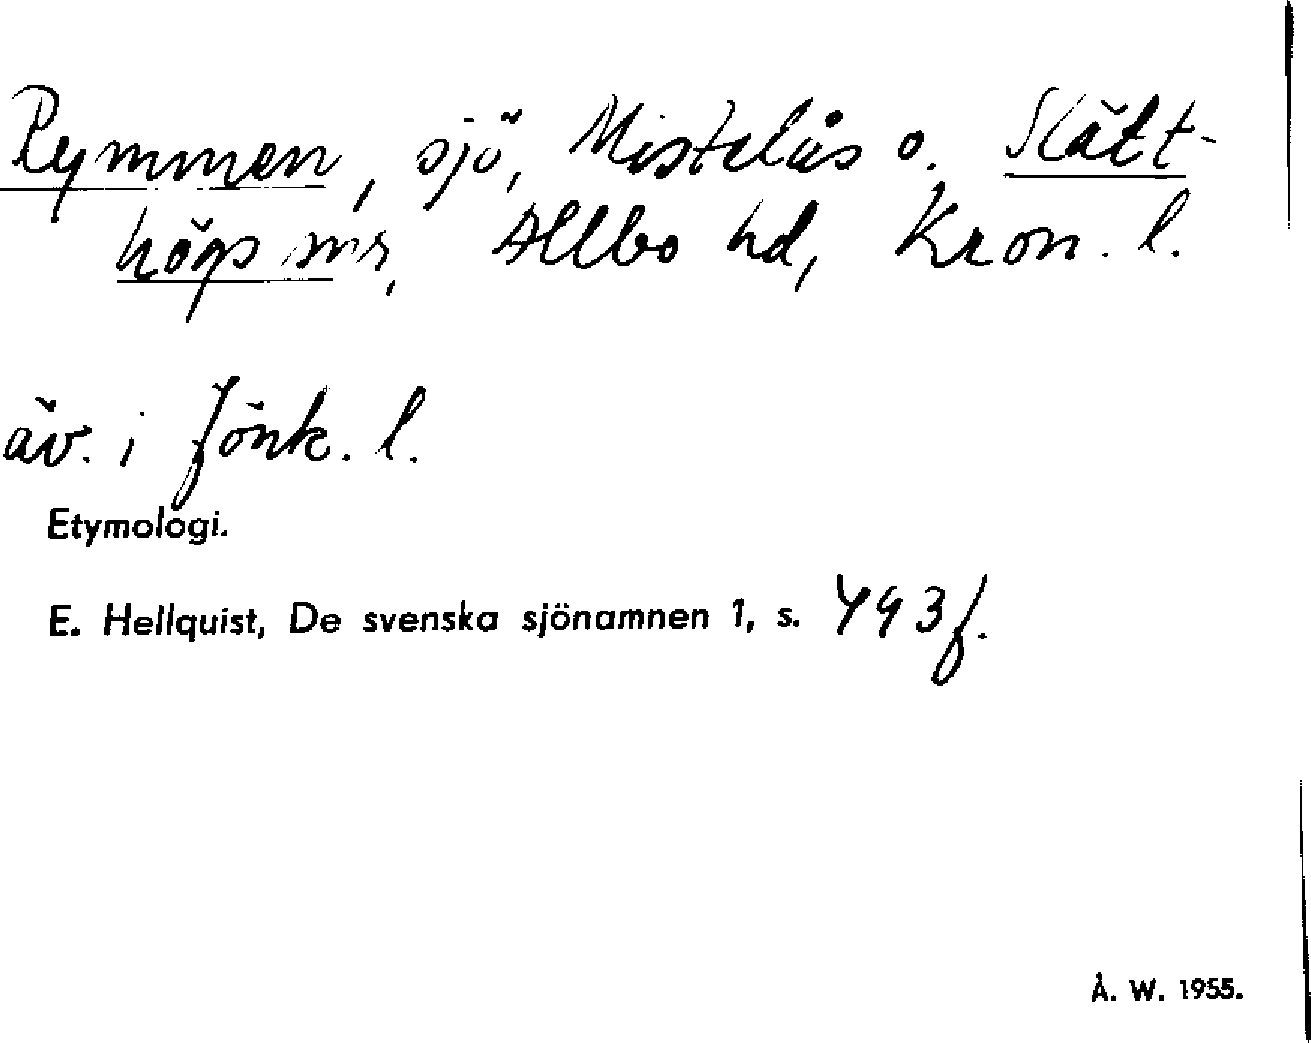 Rymmen, sjö, Mistelås o. Slätt-
högs snr, Allbo hd, Kron. l.
äv. i Jönk. l.
Etymologi.
E. Hellquist, De svenska sjönamnen 1, s. 493 f.
Å. W. 1955.